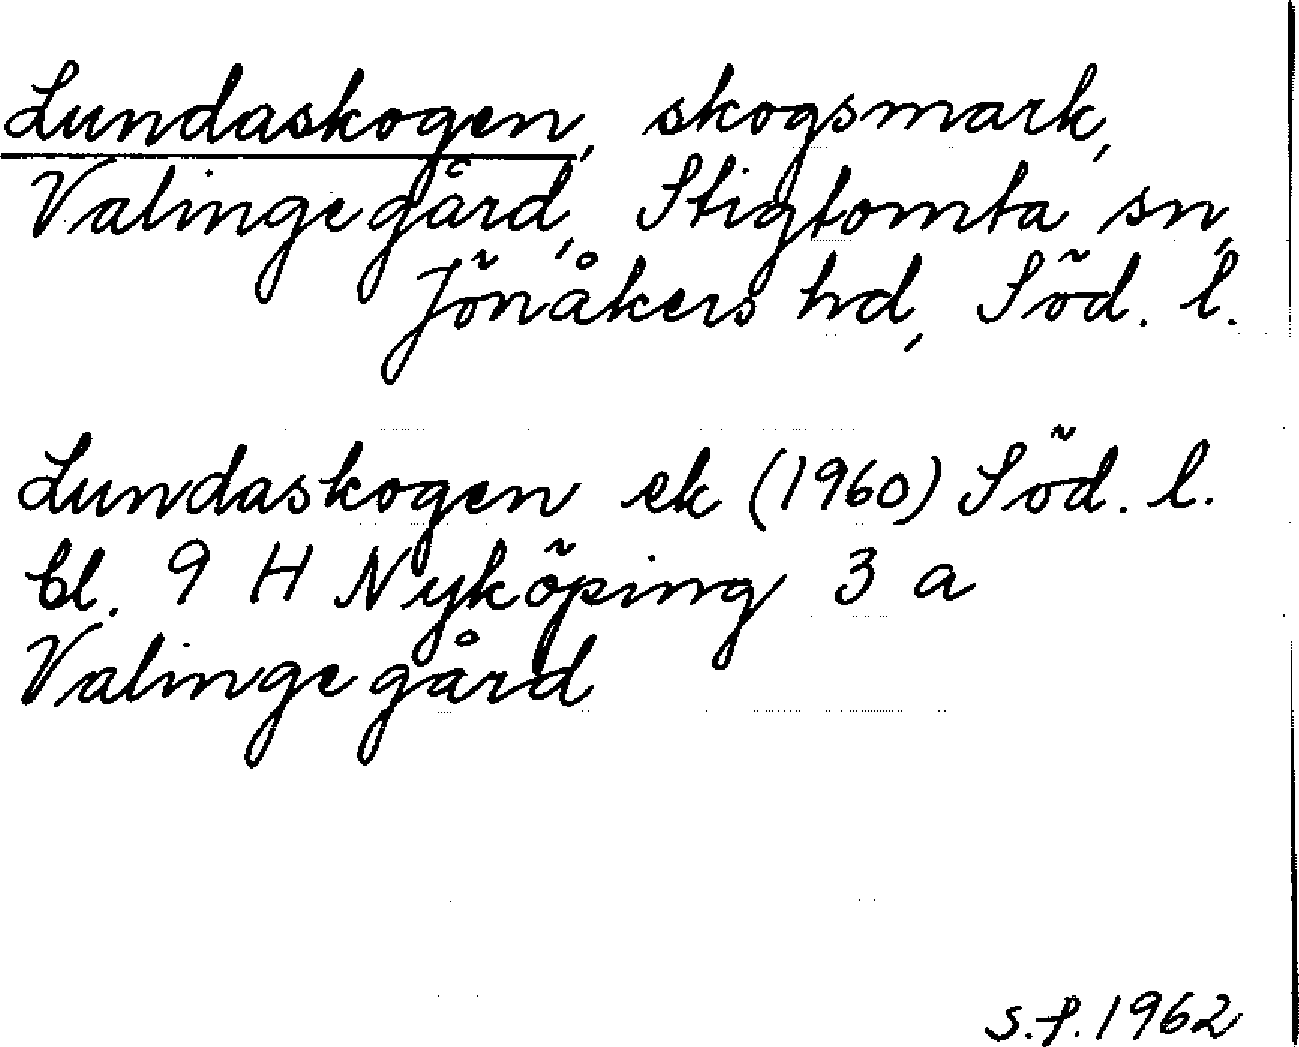 Lundaskogen, skogsmark,
Valinge gård, Stigtomta sn,
Jönåkers hd, Söd. l.
Lundaskogen ek (1960) Söd. l.
bl. 9 H Nyköping 3 a
Valinge gård
S.P. 1962